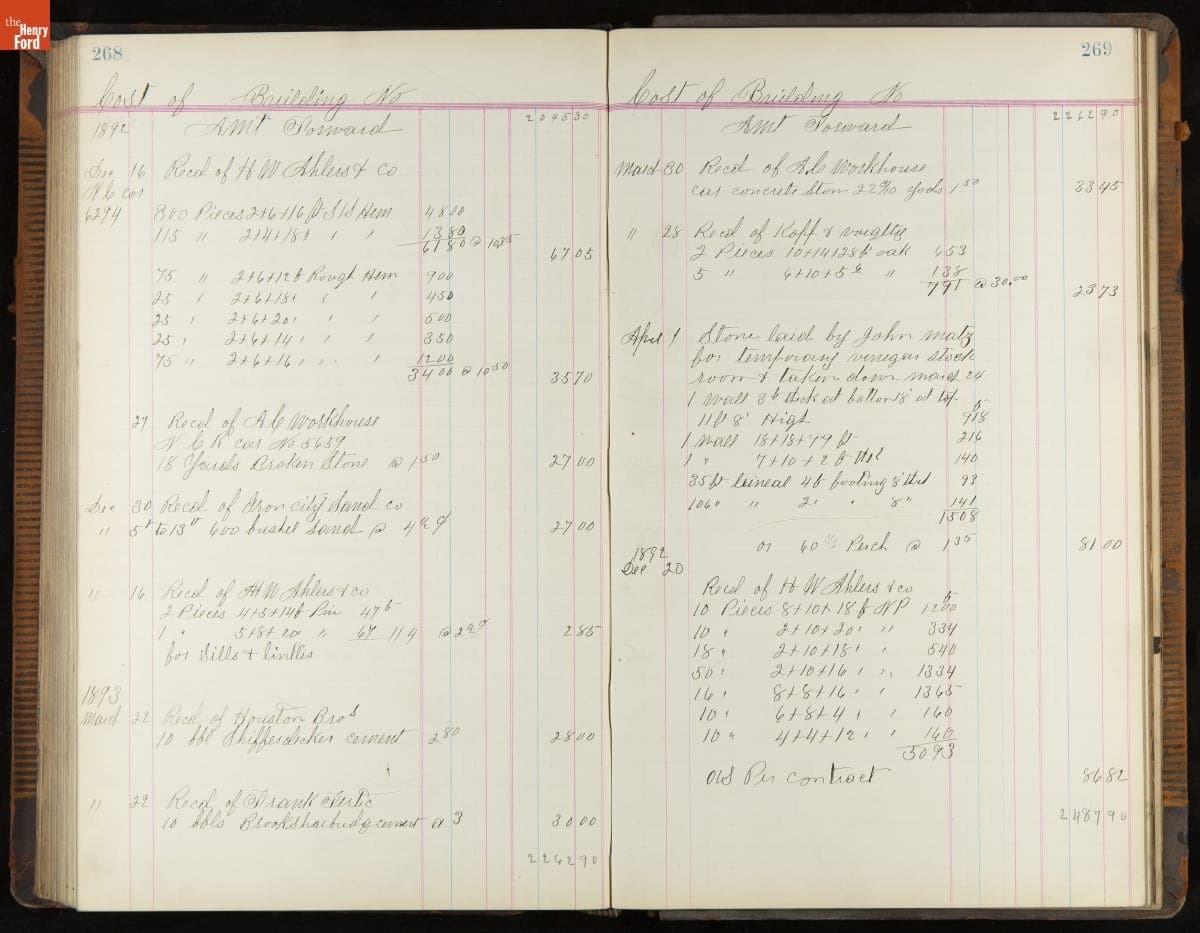 the Henry Ford
268
Cost of Building No
1892 Amt Forward 2045 30
Dec 16 Recd of H W Ahlers & co
car
6294 300 Pieces 2+6+16 ft S1S Hem 4800
115 " 2+4+18 " " 1380
6180 @ 67 05
75 " 2+6+12 ft Rough Hem 900
25 " 2+6+18 " " 450
25 " 2+6+20 " " 500
25 " 2+6+14 " " 350
75 " 2+6+16 " " 1200
3400 @ 10 50 35 70
27 Recd of A C Workhouse
car No 5659
18 Yards Broken Stone @ 1 50 27 00
Dec 30 Recd of Iron city Sand co
" 5th to 13th 600 bushel Sand @ 4 1/2 ¢ 27 00
" 16 Recd of H W Ahlers & co
2 Pieces 4+5+14 ft Pine 47 ft
1 " 5+8+20 " 67 114 @ 2 85
for Sills & lintles
1893
March 22 Recd of Houston Bros
10 bbl cement 2 80 28 00
" 22 Recd of Frank
10 bbls cement @ 3 30 00
2262 90
269
Cost of Building No
Amt Forward 2262 90
March 30 Recd of A C Workhouse
car concrete Stone yds 1 50 33 45
" 28 Recd of Kopp &
2 Pieces 10+14+28 ft oak 653
5 " 6+10+5 ft " 138
791 @ 30.00 23 73
April 1 Stone laid by John Matz
for temporary vinegar stock
room & taken down March 24
1 Wall 3 ft thick at bottom 18" at top
11 ft 8" High 918
1 Wall 18+18+ ft 216
1 " 7+10+2 ft thick 140
35 ft lineal 4 ft footing 8" thick 93
106 " " 2 " " 8" 141
1508
or 60 Perch @ 1 35 81 00
1892
Dec 20
Recd of H W Ahlers & co
10 Pieces 8+10+18 ft NP 1200
10 " 2+10+20 " " 334
18 " 2+10+18 " " 540
50 " 2+10+16 " " 1334
16 " 8+8+16 " " 1365
10 " 6+8+4 " " 160
10 " 4+4+12 " " 160
5093
Per contract 86 82
2487 90